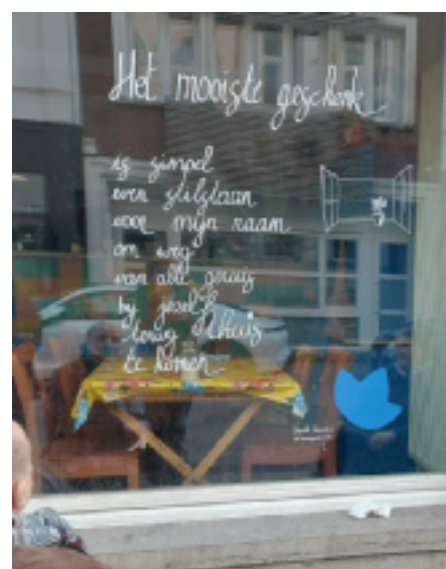 Het mooiste geschenk
is simpel
even stilstaan
voor mijn raam
om weg
van alle geruis
bij jezelf
terug thuis
te komen